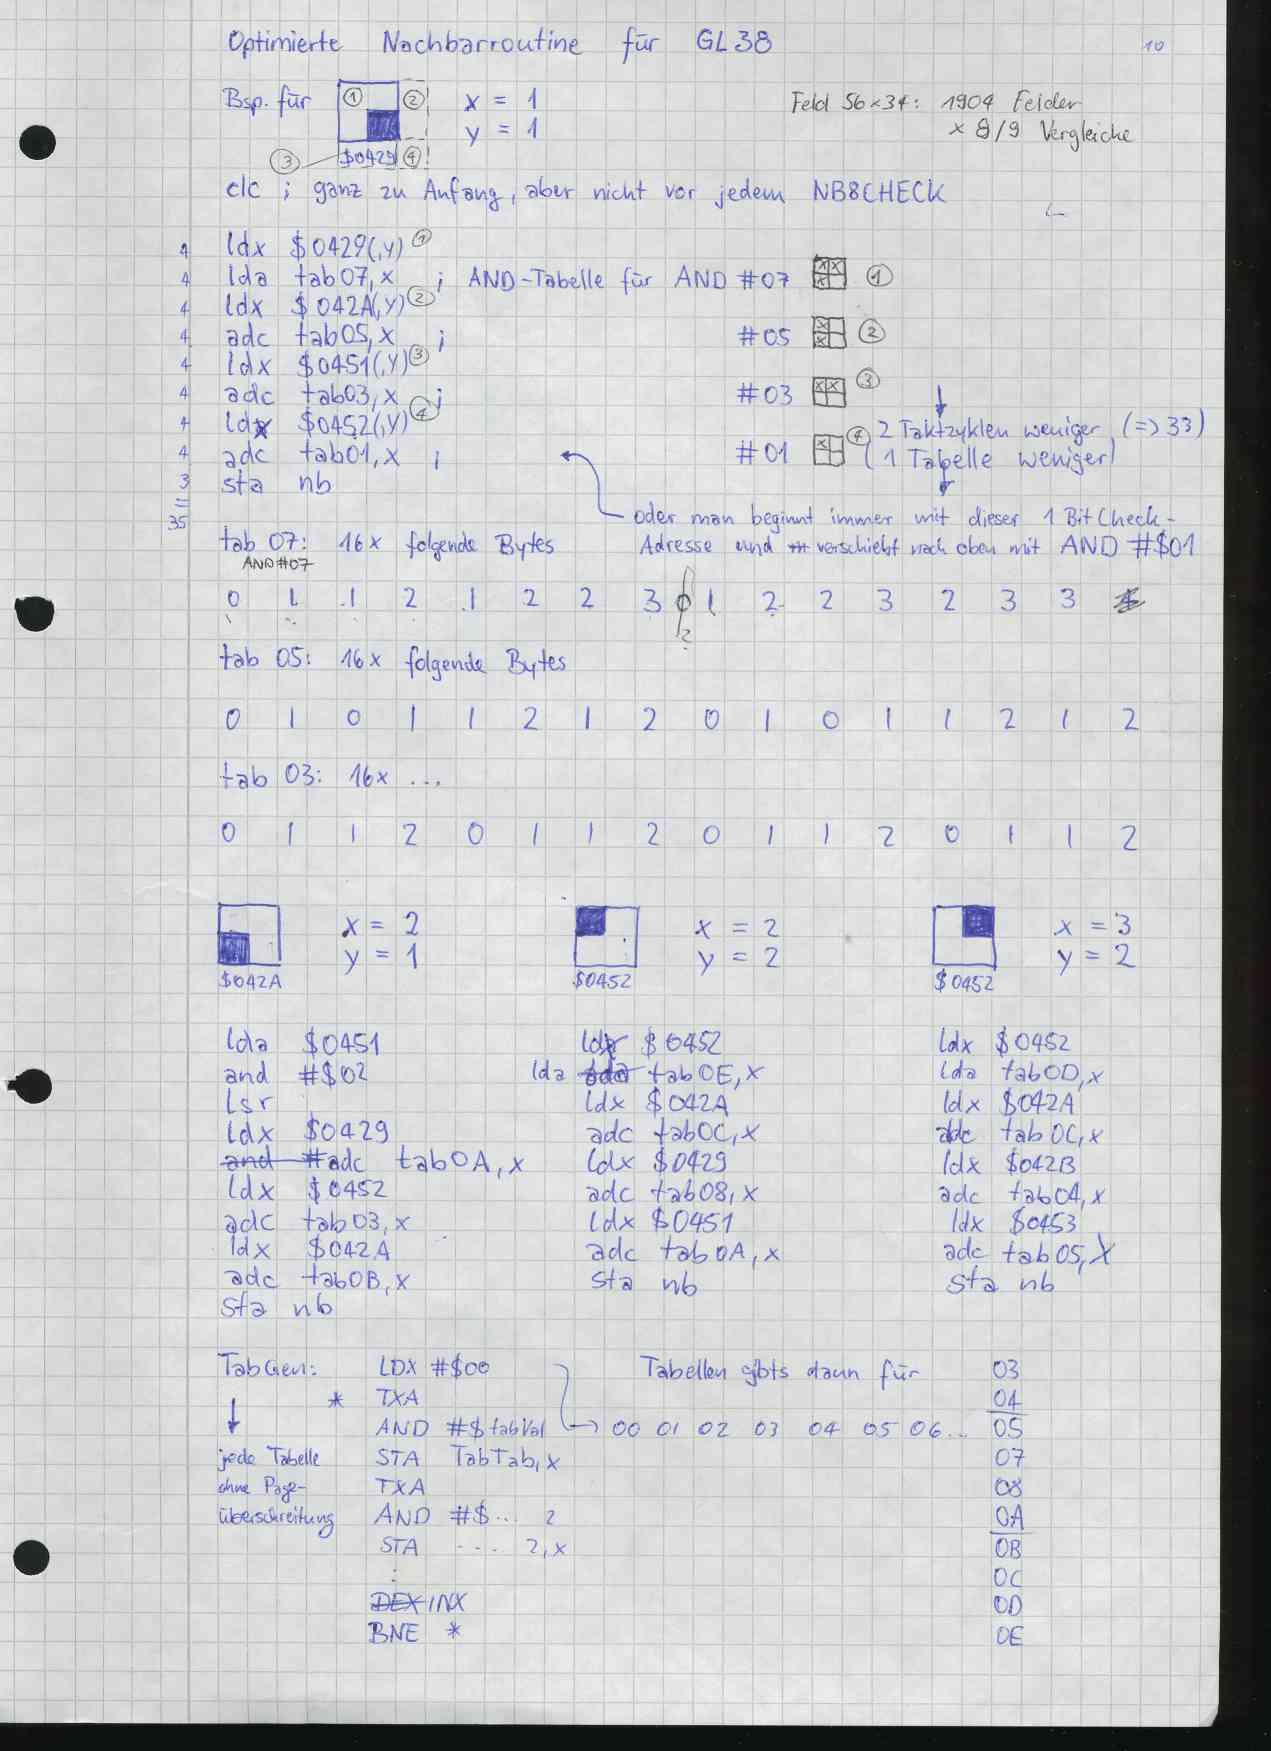 Optimierte Nachbarroutine für GL38
10
Bsp. für ① ② x = 1
y = 1
③ $0429 ④
Feld 56x34: 1904 Felder
x 8/9 Vergleiche
clc ; ganz zu Anfang, aber nicht vor jedem NB8CHECK
4 ldx $0429(,y) ①
4 lda tab07,x ; AND-Tabelle für AND #07 xxx ①
4 ldx $042A(,y) ②
4 adc tab05,x ; #05 xx ②
4 ldx $0451(,y) ③
4 adc tab03,x ; #03 xx ③
4 ldx $0452(,y) ④
4 adc tab01,x ; #01 x ④
3 sta nb
=
35
2 Taktzyklen weniger (=> 33)
(1 Tabelle weniger)
oder man beginnt immer mit dieser 1 Bit Check-
Adresse und verschiebt nach oben mit AND #$01
tab 07: 16x folgende Bytes
AND #07
0 1 1 2 1 2 2 3 0 1 2 2 3 2 3 3
?
tab 05: 16x folgende Bytes
0 1 0 1 1 2 1 2 0 1 0 1 1 2 1 2
tab 03: 16x ...
0 1 1 2 0 1 1 2 0 1 1 2 0 1 1 2
x = 2
y = 1
$042A
x = 2
y = 2
$0452
x = 3
y = 2
$0452
lda $0451
and #$02
lsr
ldx $0429
and # adc tab0A,x
ldx $0452
adc tab03,x
ldx $042A
adc tab0B,x
sta nb
ldx $0452
lda tab0E,x
ldx $042A
adc tab0C,x
ldx $0429
adc tab08,x
ldx $0451
adc tab0A,x
sta nb
ldx $0452
lda tab0D,x
ldx $042A
adc tab0C,x
ldx $042B
adc tab04,x
ldx $0453
adc tab05,x
sta nb
TabGen: LDX #$00
* TXA
AND #$tabVal
STA TabTab,x
TXA
AND #$... 2
STA ... 2,x
:
DEX INX
BNE *
jede Tabelle
ohne Page-
überschreitung
00 01 02 03 04 05 06...
Tabellen gibts dann für
03
04
05
07
08
0A
0B
0C
0D
0E